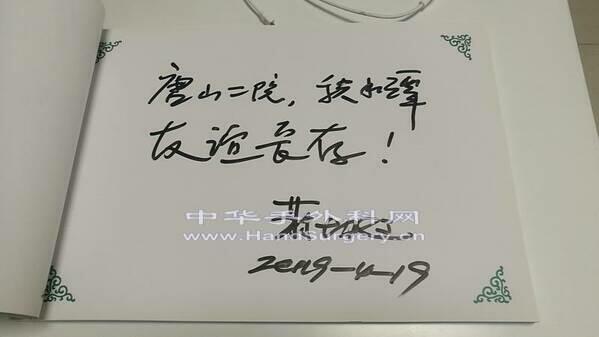 唐山二院，积水潭
友谊长存！
中华手外科网
www.HandSurgery.cn
2019-4-19